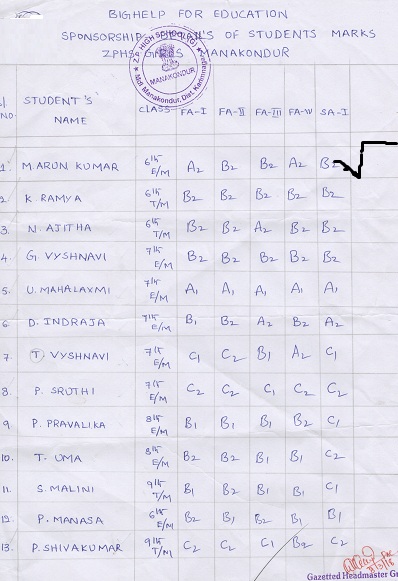 BIGHELP FOR EDUCATION
SPONSORSHIP OF STUDENTS MARKS
ZPHS GIRLS MANAKONDUR
Z.P. HIGH SCHOOL (G) MANAKONDUR Mdl. Manakondur, Dist. Karimnagar
Sl NO. STUDENT'S NAME CLASS FA-I FA-II FA-III FA-IV SA-I
1. M. ARUN KUMAR 6th E/M A2 B2 B2 A2 B2
2. K. RAMYA 6th T/M B2 B2 B2 B2 B2
3. N. AJITHA 6th T/M B2 B2 A2 B2 B2
4. G. VYSHNAVI 7th E/M B2 B2 B2 B2 B2
5. U. MAHALAXMI 7th E/M A1 A1 A1 A1 A1
6. D. INDRAJA 7th E/M B1 B2 A2 B2 A2
7. T. VYSHNAVI 7th E/M C1 C2 B1 A2 C1
8. P. SRUTHI 7th E/M C2 C2 C1 C2 C2
9. P. PRAVALIKA 8th E/M B1 B1 B1 B2 C1
10. T. UMA 8th E/M B2 B2 B1 B1 C2
11. S. MALINI 9th T/M B1 B2 B1 B1 C1
12. P. MANASA 6th E/M B2 B1 B2 B1 B1
13. P. SHIVAKUMAR 9th T/M C2 C2 C1 B2 C2
Gazetted Headmaster Gr